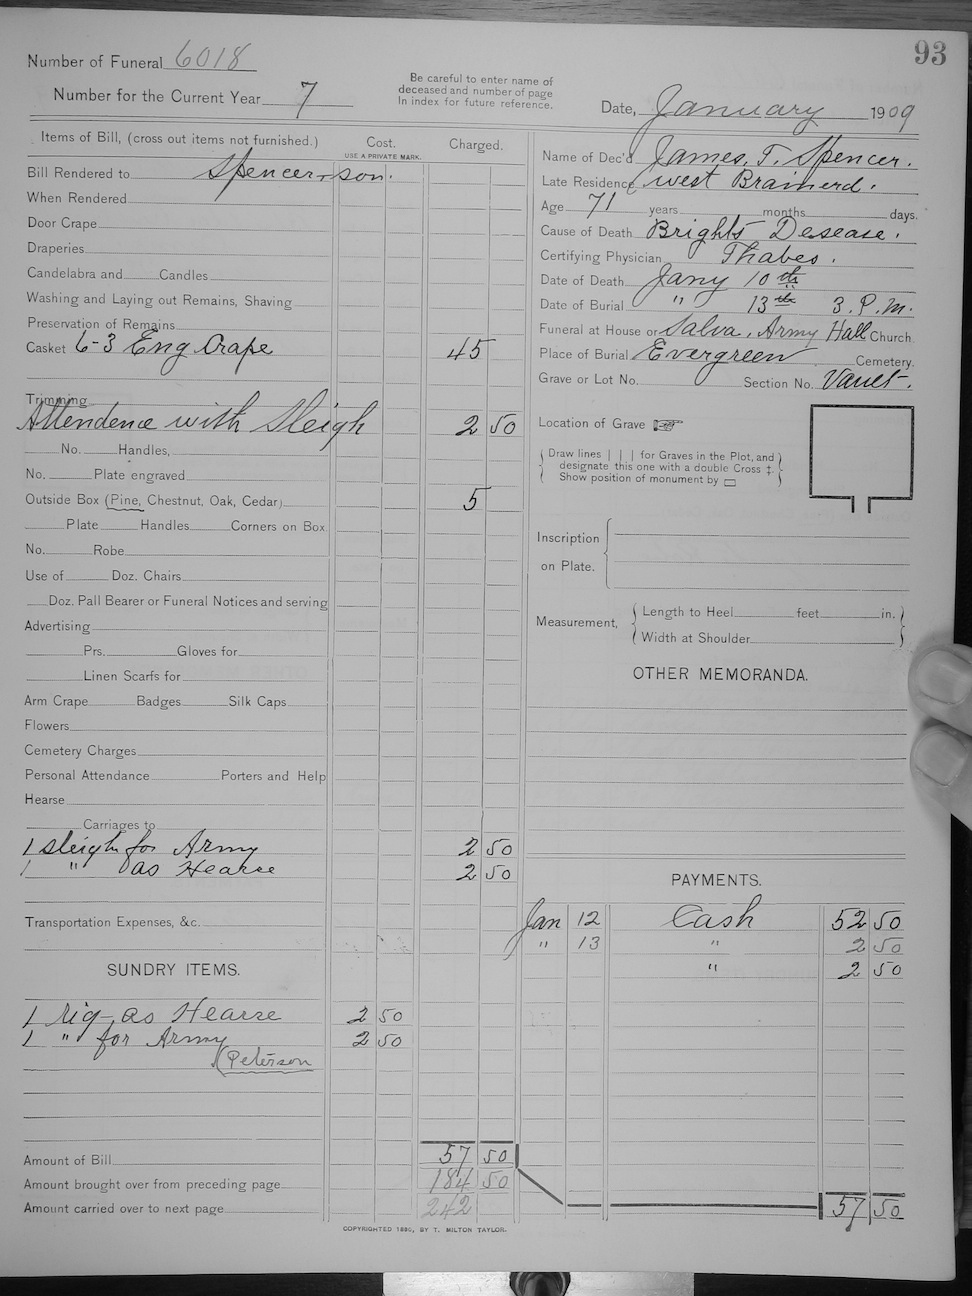 93
Number of Funeral 6018
Number for the Current Year 7
Be careful to enter name of
deceased and number of page
In index for future reference.
Date, January 1909
Items of Bill, (cross out items not furnished.) Cost. Charged.
USE A PRIVATE MARK.
Bill Rendered to Spencer, son.
When Rendered
Door Crape
Draperies
Candelabra and Candles
Washing and Laying out Remains, Shaving
Preservation of Remains
Casket 6-3 Eng Crape 45
Trimming
Attendence with Sleigh 2 50
No. Handles,
No. Plate engraved
Outside Box (Pine, Chestnut, Oak, Cedar) 5
Plate Handles Corners on Box
No. Robe
Use of Doz. Chairs
Doz. Pall Bearer or Funeral Notices and serving
Advertising
Prs. Gloves for
Linen Scarfs for
Arm Crape Badges Silk Caps
Flowers
Cemetery Charges
Personal Attendance Porters and Help
Hearse
Carriages to
1 sleigh for Army 2 50
1 " as Hearse 2 50
Transportation Expenses, &c.
SUNDRY ITEMS.
1 rig as Hearse 2 50
1 " for Army 2 50
(Peterson
Amount of Bill 57 50
Amount brought over from preceding page 184 50
Amount carried over to next page 242
Name of Dec'd James, T. Spencer.
Late Residence West Brainerd.
Age 71 years months days.
Cause of Death Brights Desease.
Certifying Physician Thabes.
Date of Death Jany 10 th
Date of Burial " 13 th 3. P. M.
Funeral at House or Salva. Army Hall Church
Place of Burial Evergreen Cemetery.
Grave or Lot No. Section No. Vault.
Location of Grave ☞
Draw lines | | | for Graves in the Plot, and
designate this one with a double Cross ‡.
Show position of monument by ▭
Inscription
on Plate.
Measurement, Length to Heel feet in.
Width at Shoulder
OTHER MEMORANDA.
PAYMENTS.
Jan 12 Cash 52 50
" 13 " 2 50
" 2 50
57 50
COPYRIGHTED 1880, BY T. MILTON TAYLOR.